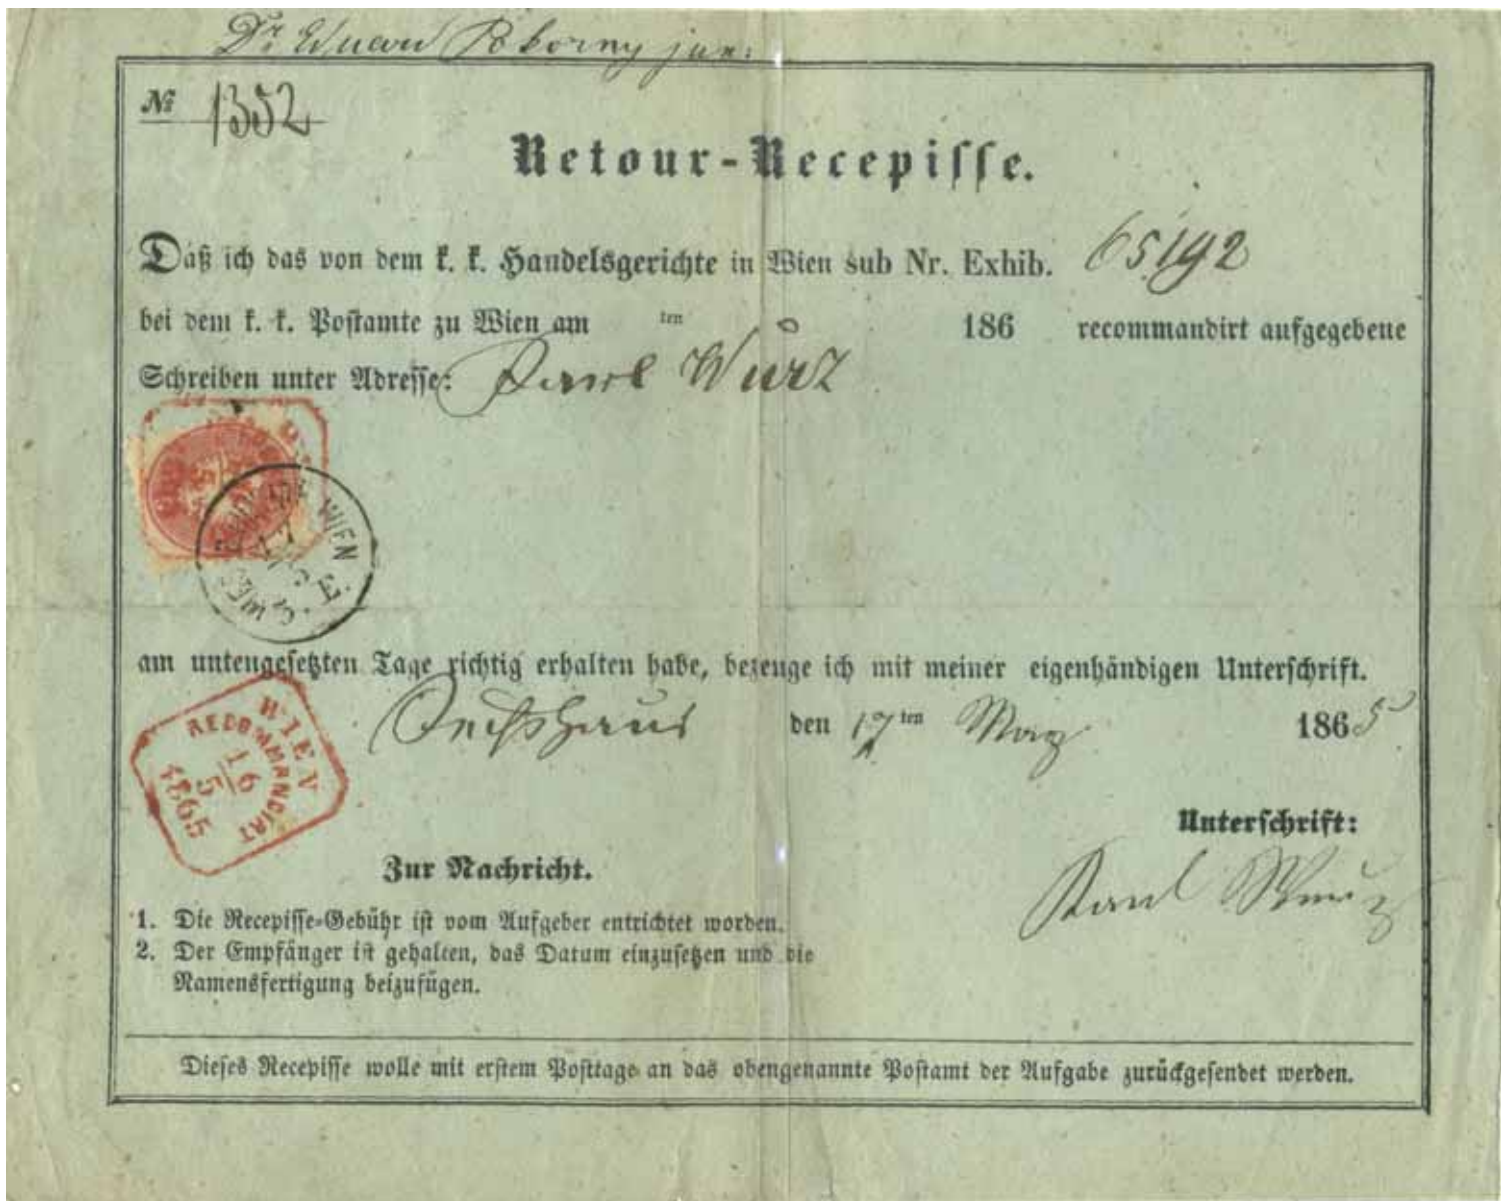 Dr. Eduard Pokorny jun.
№ 1352
Retour-Recepisse.
Daß ich das von dem k. k. Handelsgerichte in Wien sub Nr. Exhib. 65192
bei dem k. k. Postamte zu Wien am ten 186 recommandirt aufgegebene
Schreiben unter Adresse: Karl Wurz
WIEN
am untengesetzten Tage richtig erhalten habe, bezeuge ich mit meiner eigenhändigen Unterschrift.
Sechshaus den 17ten May 1865
WIEN
RECOMMANDIRT
16
5
1865
Unterschrift:
Karl Wurz
Zur Nachricht.
1. Die Recepisse-Gebühr ist vom Aufgeber entrichtet worden.
2. Der Empfänger ist gehalten, das Datum einzusetzen und die
Namensfertigung beizufügen.
Dieses Recepisse wolle mit erstem Posttage an das obengenannte Postamt der Aufgabe zurückgesendet werden.